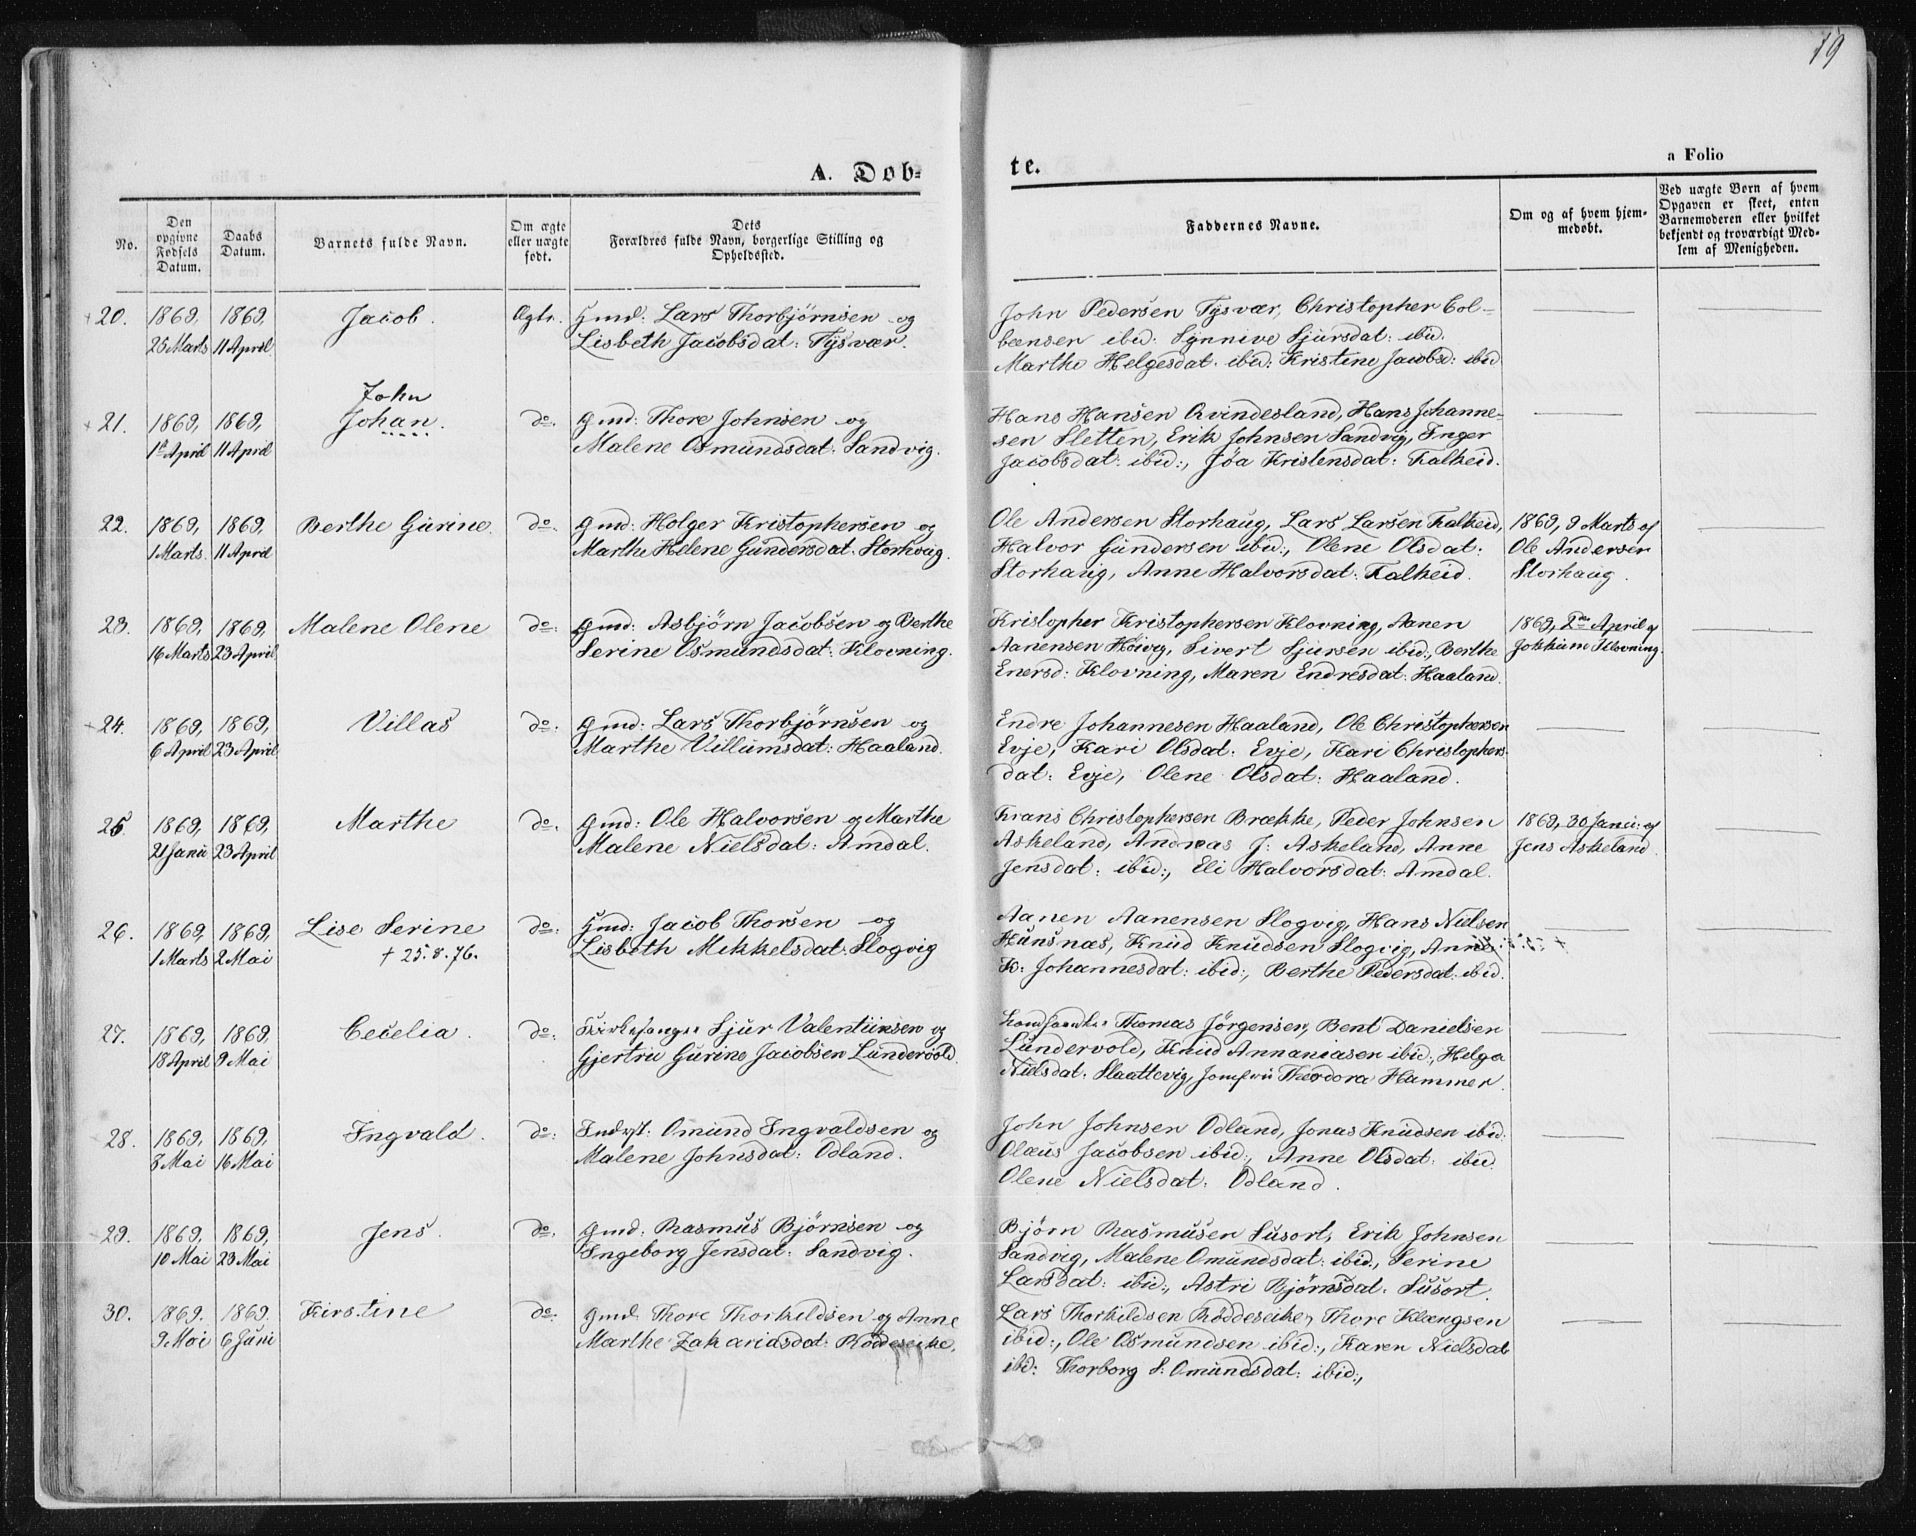 19
a Folio
A. Dob-
te.
No.
Den opgivne Fødsels Datum.
Daabs Datum.
Barnets fulde Navn.
Om ægte eller uægte født.
Dets Forældres fulde Navn, borgerlige Stilling og Opholdssted.
Faddernes Navne.
Om og af hvem hjemmedøbt.
Ved uægte Børn af hvem Opgaven er skeet, enten Barnemoderen eller hvilket bekjendt og troværdigt Medlem af Menigheden.
+20. 1869, 1869, Jacob. Ægte. Gmd: Lars Thorbjørnsen og John Pedersen Tysvær, Christopher Col-
25 Marts 11 April Lisbeth Jacobsdat: Tysvær. beensen ibid: Synnive Sjursdat: ibid.
Marthe Helgesdat. ibid: Kristine Jacobsd: ibid
John
+21. 1869, 1869, Johan. do. Gmd: Thore Johnsen og Hans Hansen Qvindesland, Hans Johanne-
1st April 11 April Malene Osmundsdat: Sandvig. sen Sletten, Erik Johnsen Sandvig, Inger
Jacobsdat: ibid:, Jøa Kristensdat: Falkeid.
22. 1869, 1869, Berthe Gurine. do: Gmd: Holger Kristophersen og Ole Andersen Storhaug, Lars Larsen Falkeid, 1869, 9 Marts af
1 Marts. 11 April Marthe Helene Gundersdat: Storhaug. Halvor Gundersen ibid:, Olene Olsdat: Ole Andersen
Storhaug, Anne Halvorsdat: Falkeid. Storhaug.
23. 1869, 1869, Malene Olene do: Gmd: Asbjørn Jacobsen og Berthe Kristopher Kristophersen Klovning, Aanen 1869, 2den April af
16 Marts 23 April Serine Osmundsdat: Klovning. Aanensen Høivig, Sivert Sjursen ibid:, Berthe Jokkum Klovning.
Enersd: Klovning, Maren Endresdat: Haaland.
+24. 1869, 1869, Villas do: Gmd: Lars Thorbjørnsen og Endre Johannesen Haaland, Ole Christophersen
6 April 23 April Marthe Villumsdat: Haaland. Evje, Kari Olsdat: Evje, Kari Christophers-
dat: Evje, Olene Olsdat: Haaland.
25. 1869, 1869, Marthe do. Gmd: Ole Halvorsen og Marthe Frans Christophersen Brække, Peder Johnsen 1869, 30 Janu: af
21 Janu 23 April Malene Nielsdat: Amdal. Askeland, Andreas J: Askeland, Anne Jens Askeland.
Jensdat: ibid:, Eli Halvorsdat: Amdal.
26. 1869, 1869, Lise Serine do: Gmd: Jacob Thorsen og Aanen Aanensen Slogvig, Hans Nielsen
1 Marts 2 Mai + 25.8.76. Lisbeth Mikkelsdat: Slogvig Hunsnæs, Knud Knudsen Slogvig, Anne
K: Johannesdat: ibid:, Berthe Pedersdat: ibid.
27. 1869, 1869, Cecelia. do: Kirkesanger Sjur Valentinsen og Thomas Jørgensen, Bent Danielsen
18 April 9 Mai Gjertru Gurine Jacobsen Lundervold. Lundervold, Knud Annaniasen ibid:, Helga
Nielsdat: Slaattevig, Jomfru Theodora Hammer.
28. 1869, 1869, Ingvald. do: Indst: Omund Ingvaldsen og John Johnsen Odland, Jonas Knudsen ibid:
8 Mai 16 Mai Malene Johnsdat: Odland. Olæus Jacobsen ibid:, Anne Olsdat: ibid.
Olene Nielsdat: Odland.
29. 1869. 1869. Jens. do: Gmd: Rasmus Bjørnsen og Bjørn Rasmusen Susort, Erik Johnsen
10 Mai 23 Mai Ingeborg Jensdat: Sandvig. Sandvig, Malene Omundsdat: ibid:, Serine
Larsdat: ibid:, Astri Bjørnsdat: Susort.
30. 1869. 1869. Kirstine do: Gmd: Thore Thorkildsen og Anne Lars Thorkildsen Røddeseike, Thore Klængsen
9 Mai 6 Juni Marthe Zakariasdat: Røddeseike. ibid:, Ole Osmundsen ibid:, Karen Nielsdat
ibd: Thorborg S: Omundsdat: ibid:,